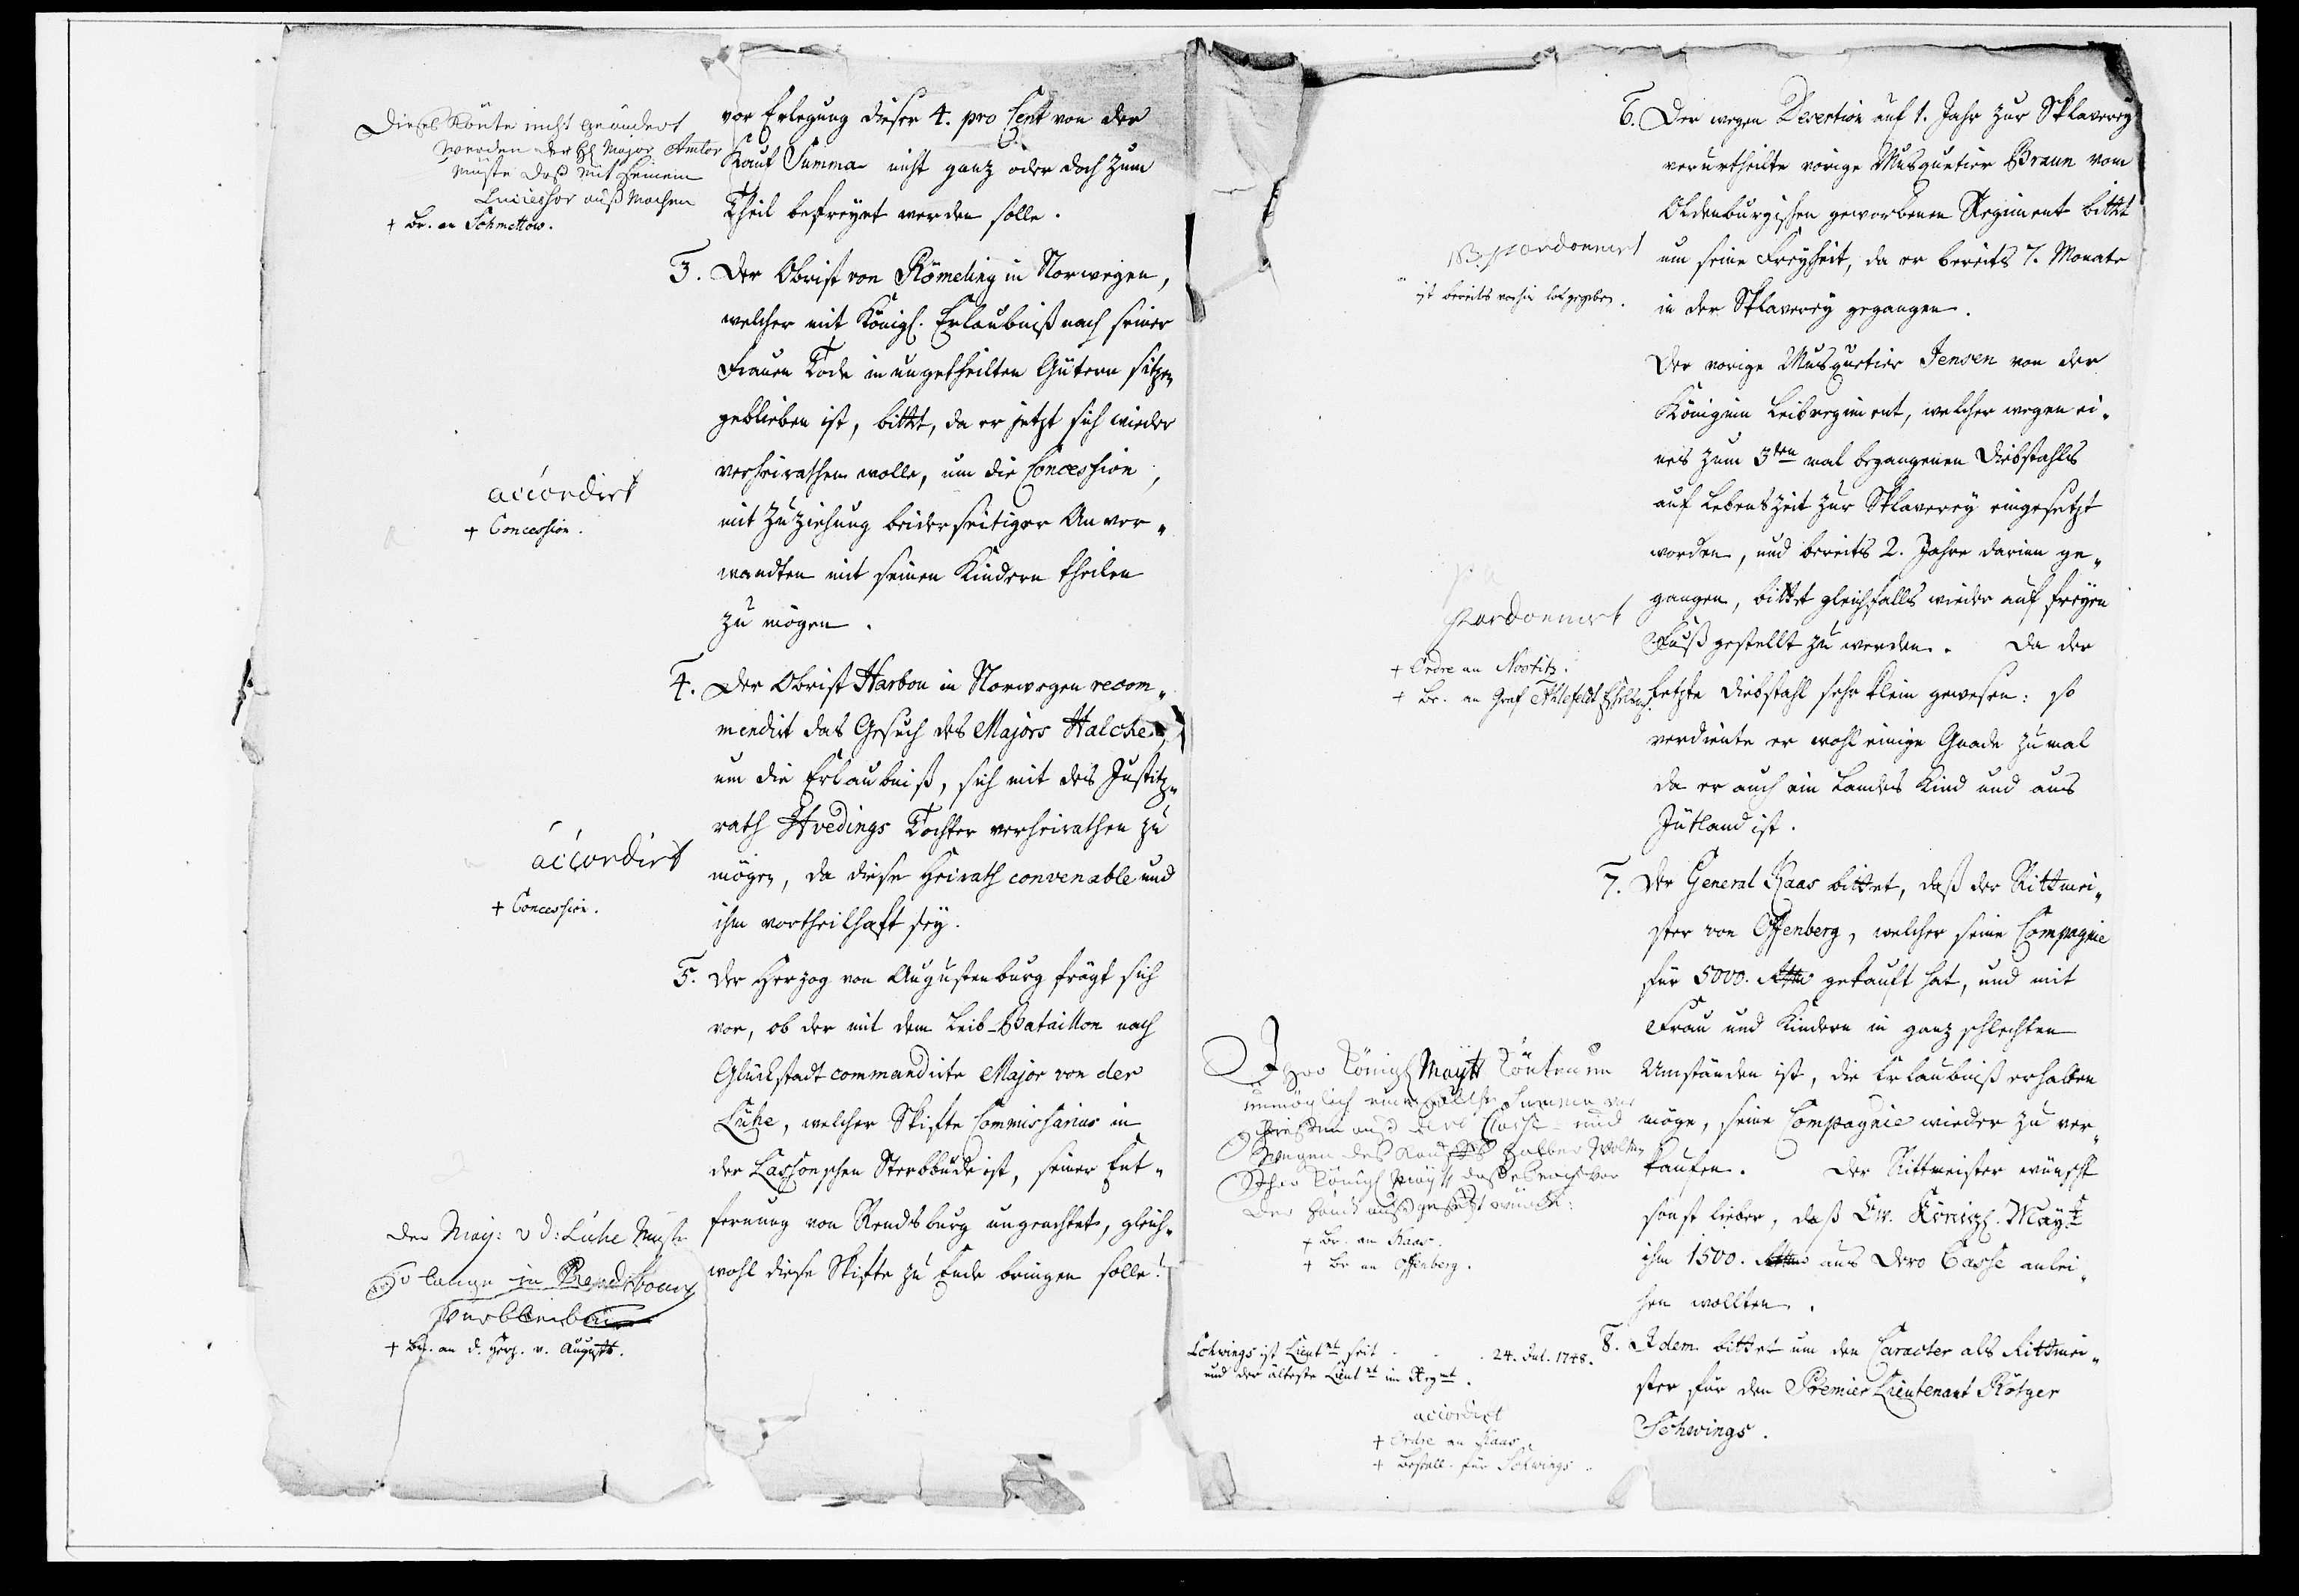 Dieses könte nicht geändert
werden der H. Major Amtor
müste daß mit seinem
Successor auß machen
+ Br. an Schmettow.
vor Erlegung dieser 4. pro Cent von der
Kauf Summa nicht ganz oder doch zum
Theil befreyet werden solle.
3. Der Obrist von Römeling in Norwegen,
welcher mit Königl. Erlaubniß nach seiner
Frauen Tode in ungetheilten Gütern sitzen
geblieben ist, bittet, da er jetzt sich wieder
verheirathen wolle, um die Concession,
mit Zuziehung beiderseitiger Anver-
wandten mit seinen Kindern theilen
zu mögen.
accordirt
+ Concession.
4. Der Obrist Harbou in Norwegen recom-
mendirt das Gesuch des Majors Halcke,
um die Erlaubniß, sich mit des Justitz-
rath Hvedings Tochter verheirathen zu
mögen, da diese Heirath convenable und
ihm vortheilhaft sey.
accordirt
+ Concession.
5. Der Herzog von Augustenburg frägt sich
vor, ob der mit dem Leib-Bataillon nach
Glückstadt commandirte Major von der
Lühe, welcher Skifte Commissarius in
der Lassonschen Sterbbude ist, seiner Ent-
fernung von Rendsburg ungeachtet, gleich-
wohl diese Skifte zu Ende bringen solle?
Der Maj: v d: Lühe Muste
So lange in Rendsbourg
verbleiben
+ Br. an d. Herz. v. Augustb.
6. Der wegen Desertion auf 1. Jahr zur Sklaverey
verurtheilte vorige Musquetier Braun vom
Oldenburgischen geworbenen Regiment bittet
um seine Freyheit, da er bereits 7. Monate
in der Sklaverey gegangen.
pardonnirt
ist bereits vorhin losgegeben.
Der vorige Musquetier Jensen von der
Königin Leibregiment, welcher wegen ei-
nes zum 3ten mal begangenen Diebstahls
auf Lebenszeit zur Sklaverey eingesetzt
worden, und bereits 2. Jahre darinn ge-
gangen, bittet gleichfalls wieder auf freyen
Fuß gestellt zu werden. Da der
letzte Diebstahl sehr klein gewesen: so
verdiente er wohl einige Gnade zumal
da er auch ein Landes Kind und aus
Jütland ist.
pardonnirt
+ Ordre an Nostitz.
+ Br. an Graf Ahlefeldt
7. Der General Kaas bittet, daß der Rittmei-
ster von Offenberg, welcher seine Compagnie
für 5000. Rthlr gekauft hat, und mit
Frau und Kindern in ganz schlechten
Umständen ist, die Erlaubniß erhalten
möge, seine Compagnie wieder zu ver-
kaufen. Der Rittmeister wünscht
sonst lieber, daß Ew. Königl. Maytt
ihm 1500. Rthlr aus Dero Casse anlei-
hen wollten.
Ihro Königl Maytt könten
unmöglich eine solche Summa vor
schießen auß dero Casse und
wegen des Kauffes halber wolten
Ihro Königl Maytt daß es noch vor
der Hand außgesetzt würde:
+ Br. an Kaas.
+ Br. an Offenberg.
8. Idem bittet um den Caracter als Rittmei-
ster für den Premier Lieutenant Rötger
Schwings.
Schwings ist Lieutnt seit . . . 24. Jul. 1748.
und der älteste Lieutnt im Regmt.
accordirt
+ Ordre an Kaas.
+ Bestall. für Schwings.